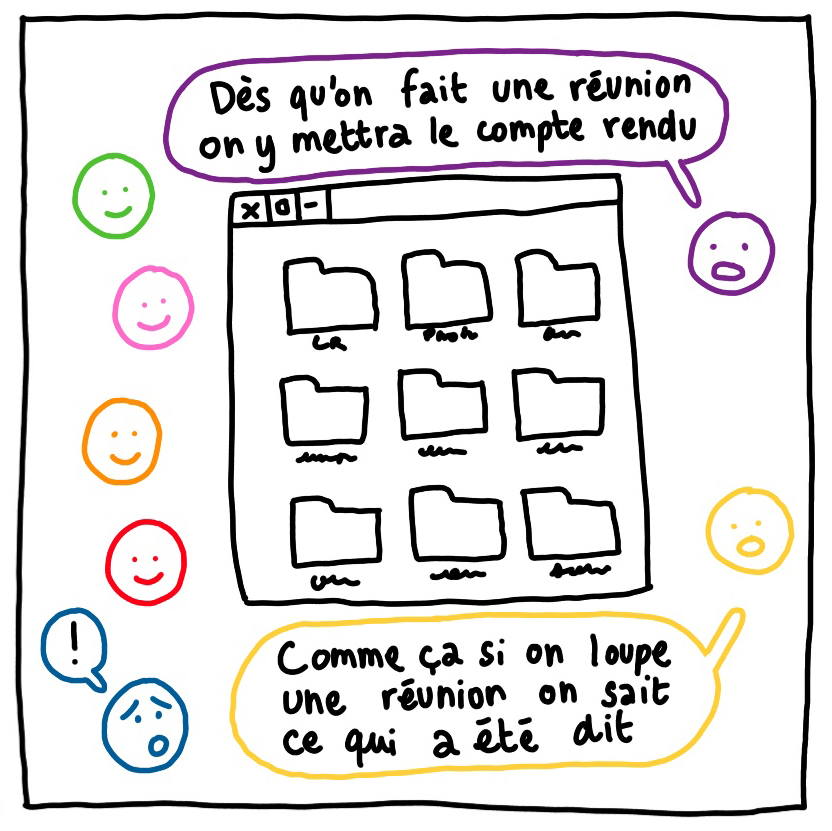 Dès qu'on fait une réunion
on y mettra le compte rendu
x o -
CR
!
Comme ça si on loupe
une réunion on sait
ce qui a été dit